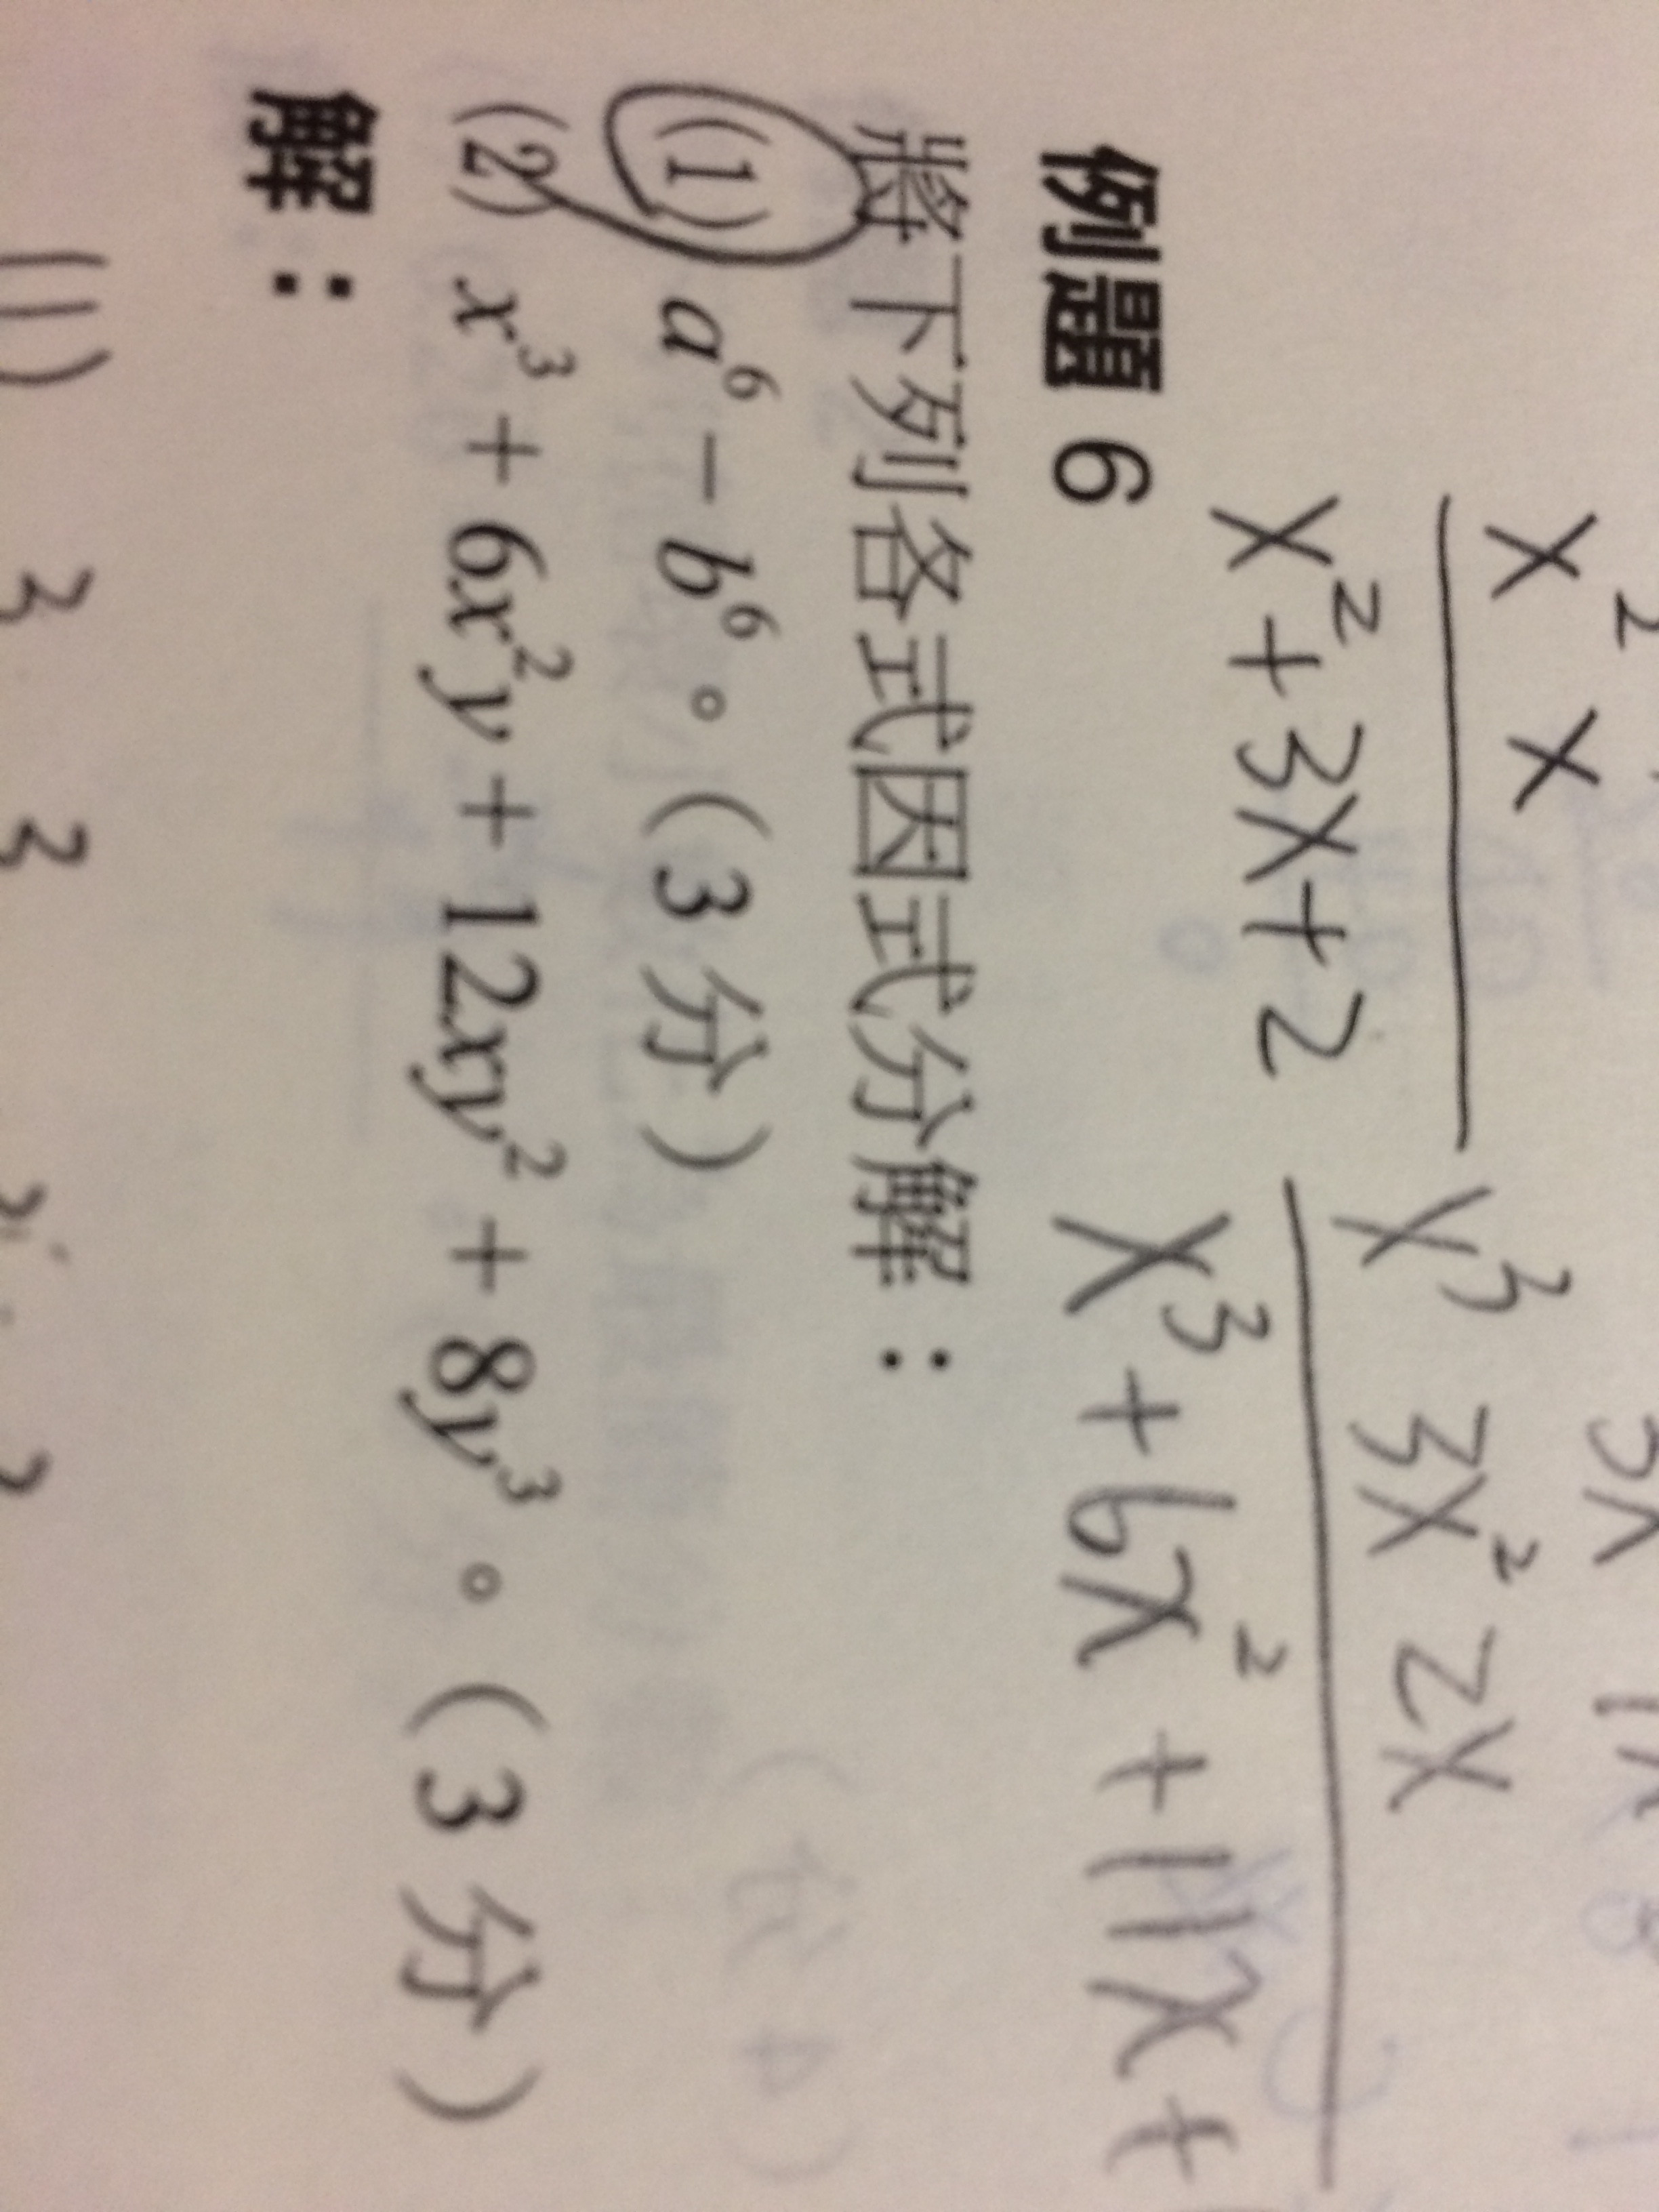 x² x
x² + 3x + 2
x³ 3x² 2x
x³ + 6x² + 11x +
例題 6
將下列各式因式分解：
(1) a⁶ − b⁶。(3 分)
(2) x³ + 6x²y + 12xy² + 8y³。(3 分)
解：
(1) 3 3